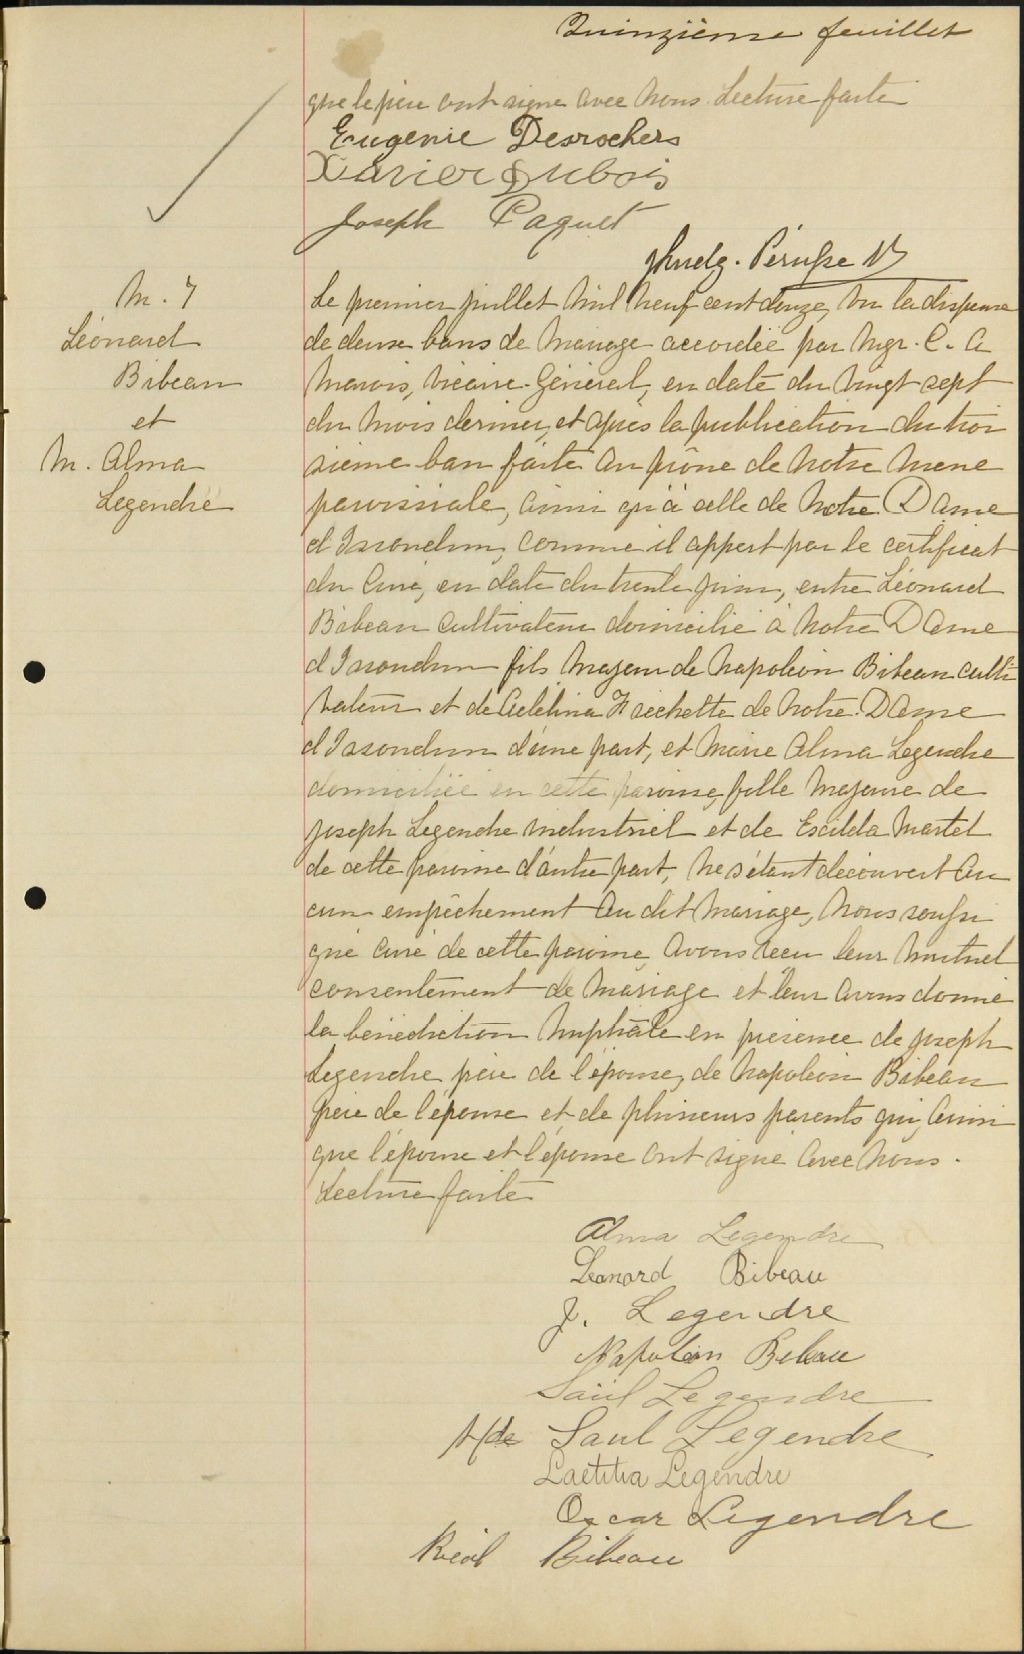 Quinzième feuillet
que le père ont signé avec nous. Lecture faite
Eugenie Desrochers
Xavier Dubois
Joseph Paquet
Ludg. Pérusse
M. 7
Léonard
Bibeau
et
M. Alma
Legendre
Le premier juillet mil neuf cent douze, vu la dispense
de deux bans de mariage accordée par Mgr. C. A
Marois, vicaire-Général, en date du vingt sept
du mois dernier, et après la publication du troi
sième ban faite au prône de notre messe
paroissiale, ainsi qu'à celle de Notre Dame
d'Issoudun, comme il appert par le certificat
du curé, en date du trente juin, entre Léonard
Bibeau cultivateur domicilié à Notre Dame
d'Issoudun fils majeur de Napoléon Bibeau culti
vateur et de Adelina Fréchette de Notre-Dame
d'Issoudun d'une part, et Marie Alma Legendre
domiciliée en cette paroisse, fille majeure de
Joseph Legendre industriel et de Exilda Martel
de cette paroisse d'autre part, ne s'étant découvert au
cun empêchement au dit mariage, nous soussi
gné curé de cette paroisse, avons reçu leur mutuel
consentement de mariage et leur avons donné
la bénédiction nuptiale en présence de Joseph
Legendre père de l'épouse, de Napoléon Bibeau
père de l'épouse et de plusieurs parents qui, ainsi
que l'épouse et l'épouse ont signé avec nous.
Lecture faite
Alma Legendre
Léonard Bibeau
J. Legendre
Napoléon Bibeau
Saül Legendre
Saul Legendre
Laetitia Legendre
Oscar Legendre
Réal Bibeau